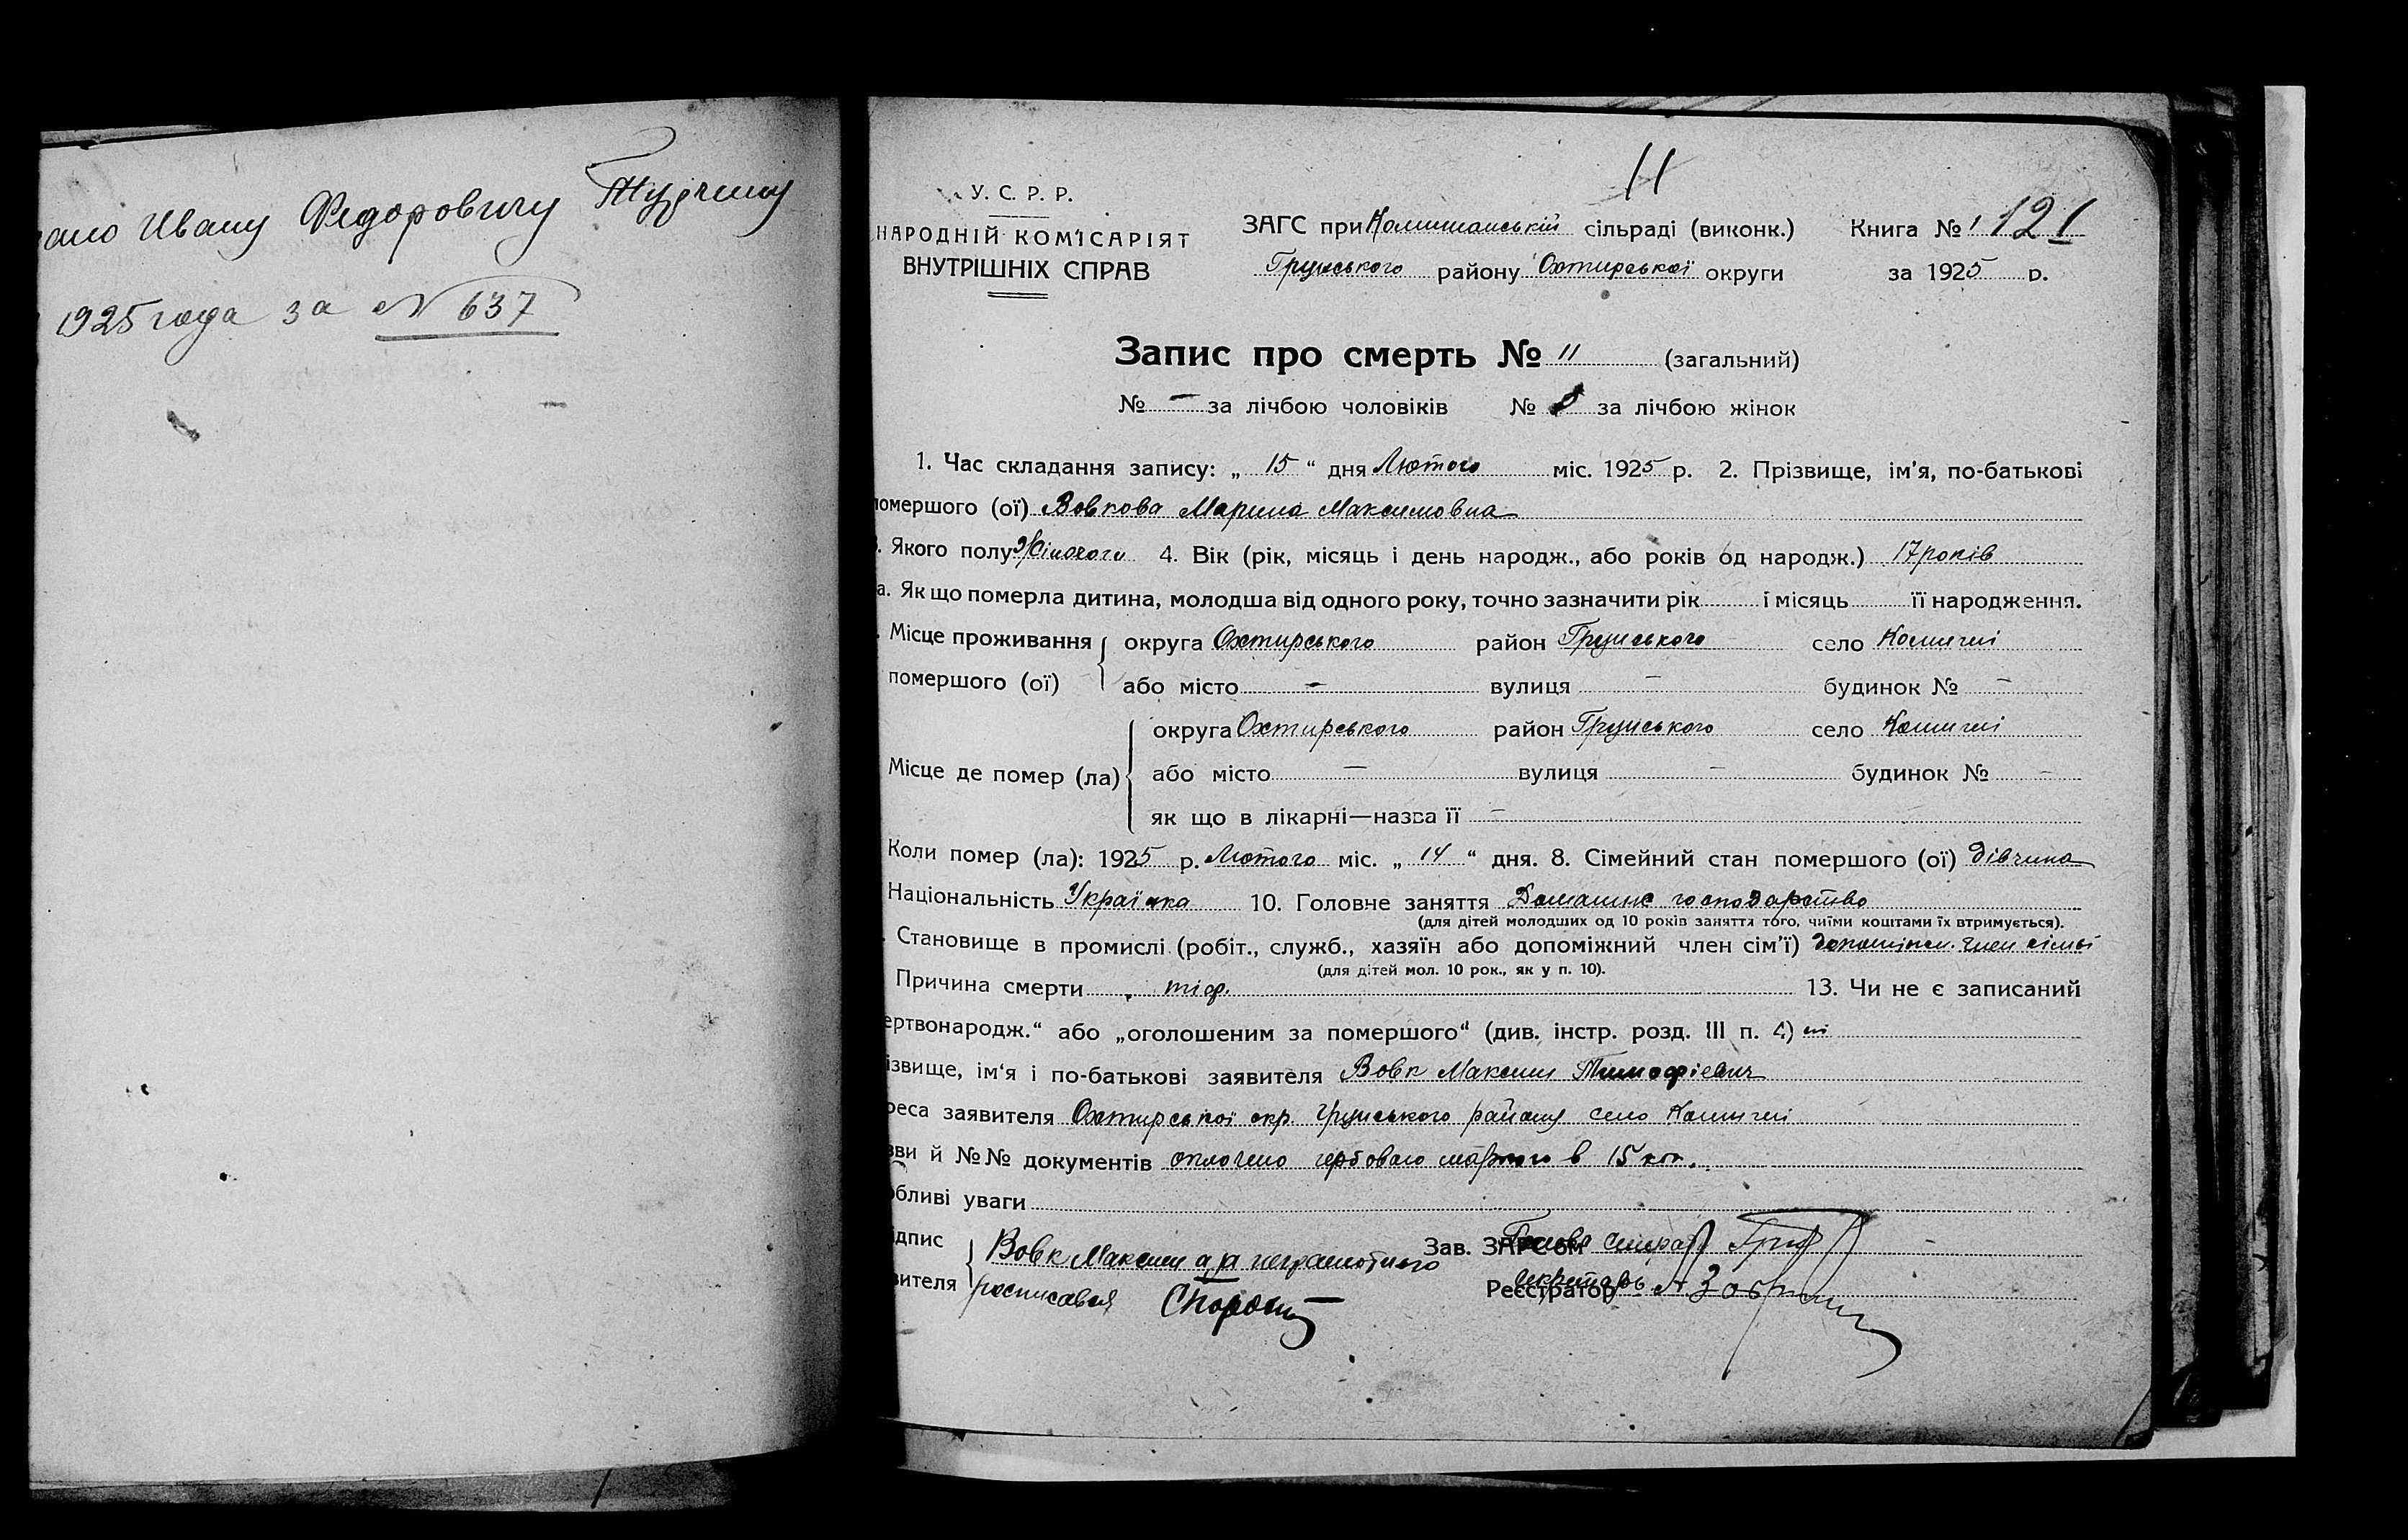 Ивану Федоровичу
1925 года за № 637
11
У. С. Р. Р.
НАРОДНІЙ КОМІСАРІЯТ
ВНУТРІШНІХ СПРАВ
ЗАГС при Комишанській сільраді (виконк.)
Грунського району Охтирської округи
Книга № 1 121
за 1925 р.
Запис про смерть № 11 (загальний)
№ - за лічбою чоловіків № 8 за лічбою жінок
1. Час складання запису: „ 15 “ дня Лютого міс. 1925 р. 2. Прізвище, ім'я, по-батькові
помершого (ої) Вовкова Марина Максимовна
3. Якого полу Жіночого 4. Вік (рік, місяць і день народж., або років од народж.) 17 років
а. Як що померла дитина, молодша від одного року, точно зазначити рік і місяць її народження.
Місце проживання округа Охтирського район Грунського село Комиші
помершого (ої) або місто - вулиця - будинок № -
округа Охтирського район Грунського село Комиші
Місце де помер (ла) або місто - вулиця - будинок № -
як що в лікарні—назва її -
Коли помер (ла): 1925 р. Лютого міс. „ 14 “ дня. 8. Сімейний стан помершого (ої) дівчина
Національність Українка 10. Головне заняття Домашнє господарство
(для дітей молодших од 10 років заняття того, чиїми коштами їх втримується).
Становище в промислі (робіт., служб., хазяїн або допоміжний член сім'ї) допоміжн. член сімьї
(для дітей мол. 10 рок., як у п. 10).
Причина смерти тіф. 13. Чи не є записаний
ертвонародж.“ або „оголошеним за помершого“ (див. інстр. розд. III п. 4) ні
ізвище, ім'я і по-батькові заявителя Вовк Максим Тимофієвич
реса заявителя Охтирської окр. Грунського району село Комиші
зви й №№ документів оплочено гербовою маркою в 15 коп.
обливі уваги
ідпис Вовк Максим а за неграмотного
вителя росписався
Зав. ЗАГС'ом Голова сільради
Реєстратор Секретарь